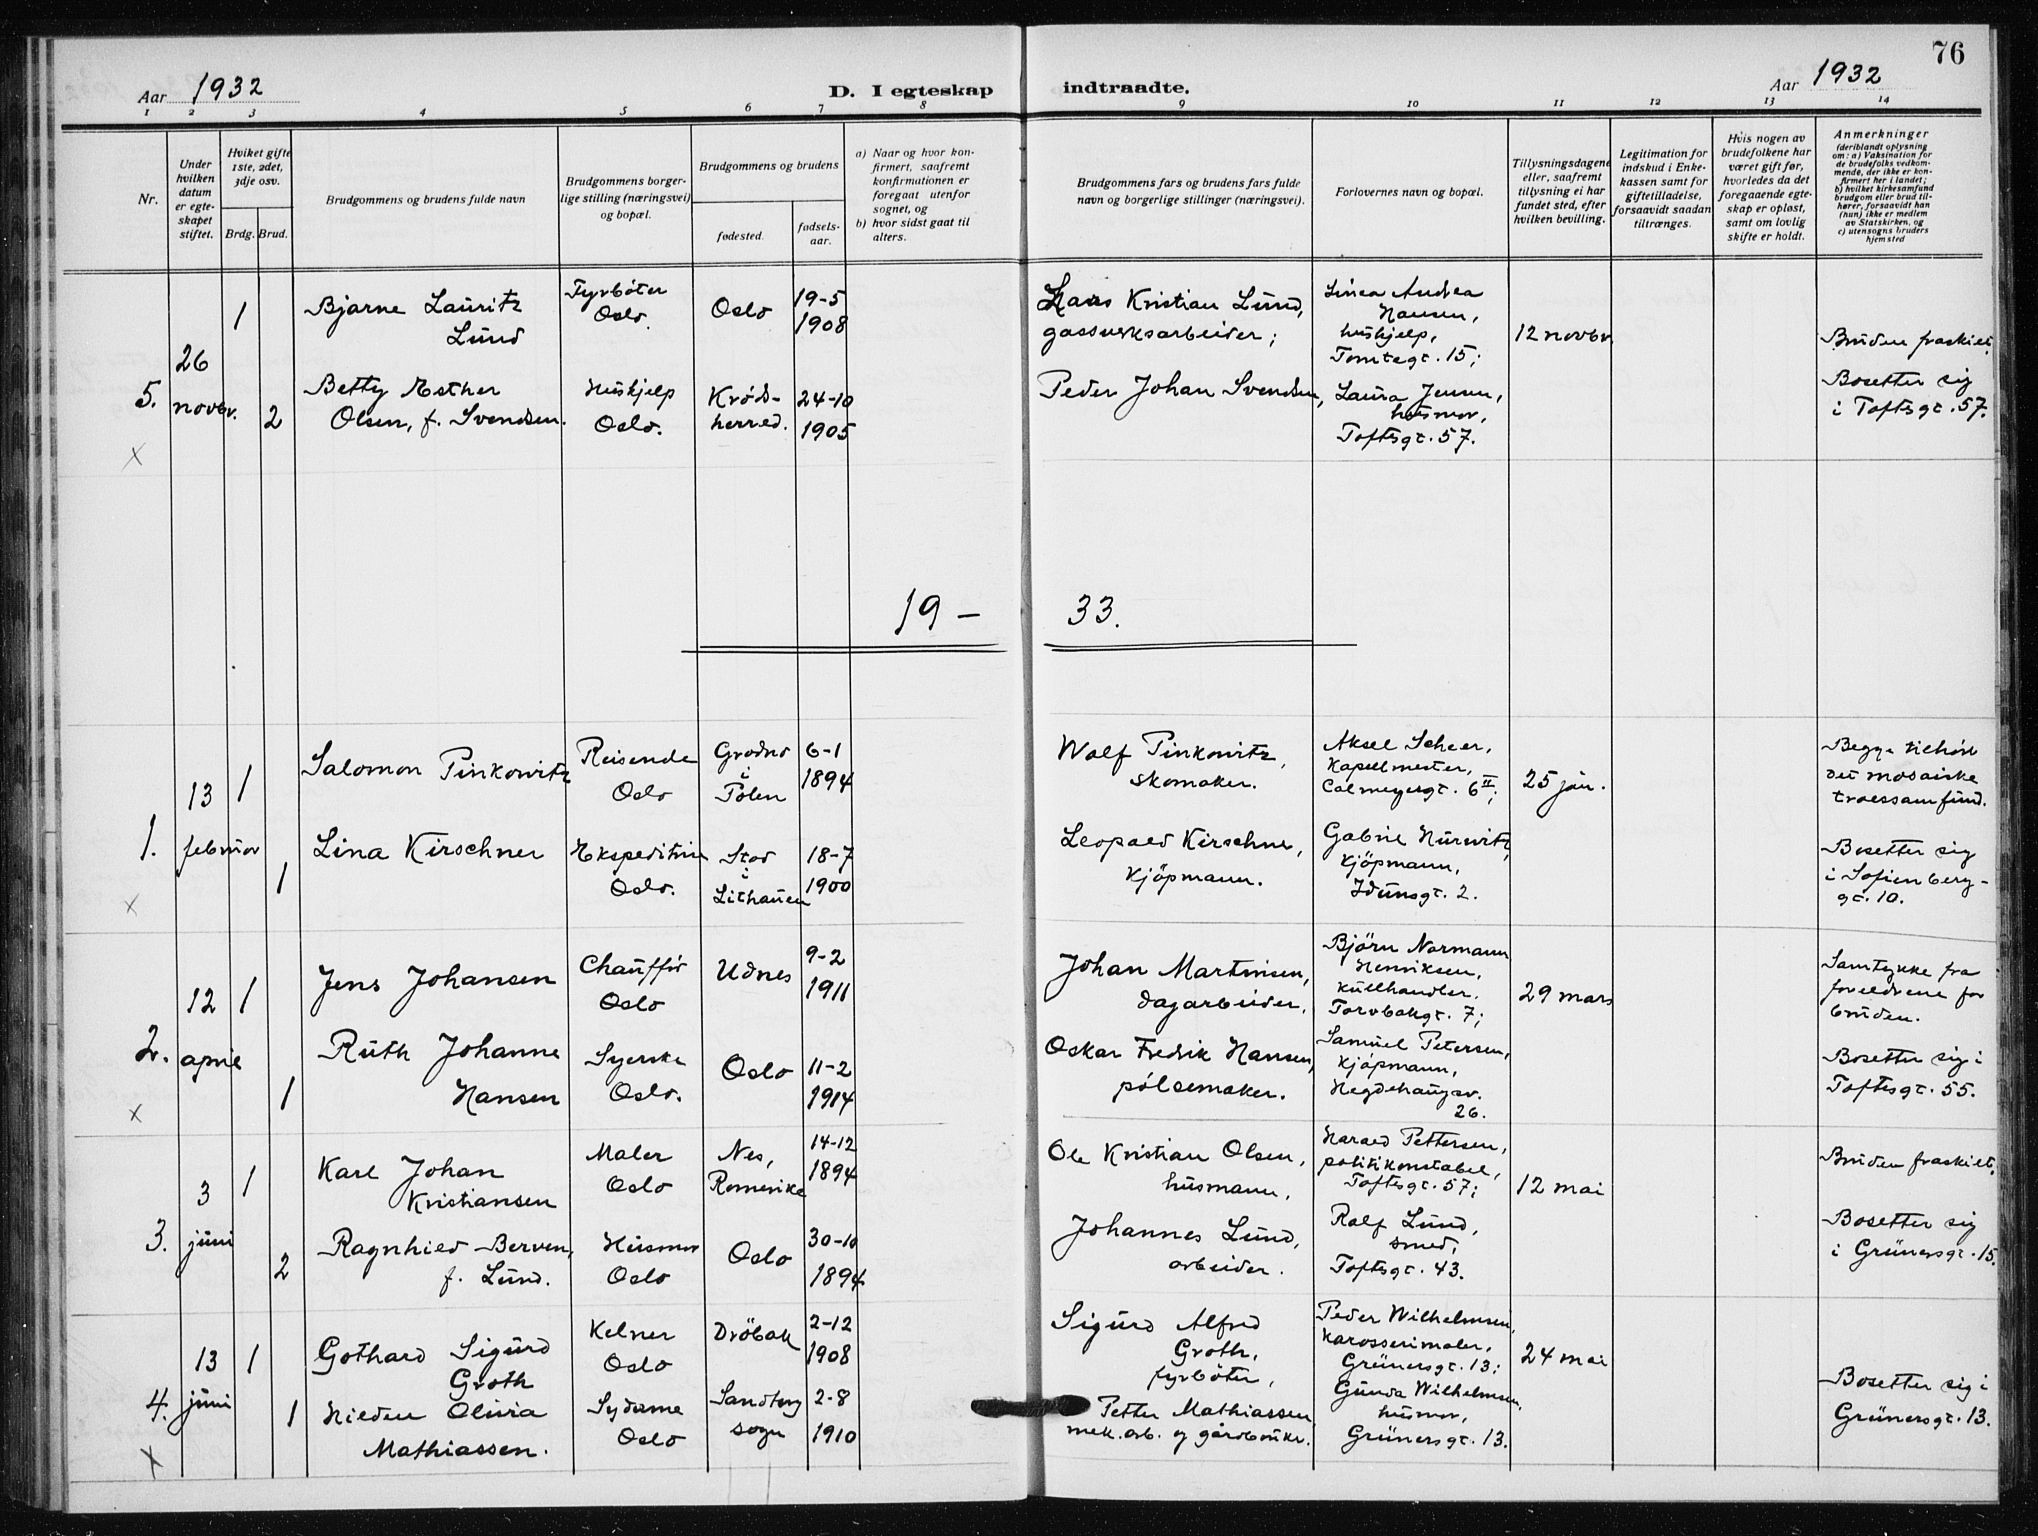 76
Aar 1932
D. I egteskap indtraadte.
Aar 1932
1 2 3 4 5 6 7 8 9 10 11 12 13 14
Nr.
Under
hvilken
datum
er egte-
skapet
stiftet.
Hviket gifte
1ste, 2det,
3dje osv.
Brdg. Brud.
Brudgommens og brudens fulde navn
Brudgommens borger-
lige stilling (næringsvei)
og bopæl.
Brudgommens og brudens
fødested.
fødsels-
aar.
a) Naar og hvor kon-
firmert, saafremt
konfirmationen er
foregaat utenfor
sognet, og
b) hvor sidst gaat til
alters.
Brudgommens fars og brudens fars fulde
navn og borgerlige stillinger (næringsvei).
Forlovernes navn og bopæl.
Tillysningsdagene
eller, saafremt
tillysning ei har
fundet sted, efter
hvilken bevilling.
Legitimation for
indskud i Enke-
kassen samt for
giftetilladelse,
forsaavidt saadan
tiltrænges.
Hvis nogen av
brudefolkene har
været gift før,
hvorledes da det
foregaaende egte-
skap er opløst,
samt om lovlig
skifte er holdt.
Anmerkninger
(deriblandt oplysning
om: a) Vaksination for
de brudefolks vedkom-
mende, der ikke er kon-
firmert her i landet;
b) hvilket kirkesamfund
brudgom eller brud til-
hører, forsaavidt han
(hun) ikke er medlem
av Statskirken, og
c) utensogns bruders
hjemsted
5.
26
novbr.
1
Bjarne Lauritz
Lund
Fyrbøter
Oslo.
Oslo
19-5
1908
Hans Kristian Lund,
gassverksarbeider;
Linea Andrea
Hansen,
hushjelp,
Tomtegt. 15;
12 novbr.
Bruden fraskilt.
2
Betty Esther
Olsen, f. Svendsen.
Hushjelp
Oslo.
Krøds-
herred.
24-10
1905
Peder Johan Svendsen,
Laura Jensen,
husmor,
Toftsgt. 57.
Bosetter sig
i Toftsgt. 57.
x
19 – 33.
1.
13
februar
1
Salomon Pinkowitz
Reisende
Oslo
Grodno
i
Polen
6-1
1894
Wolf Pinkowitz,
skomaker.
Aksel Scheer,
kapellmester,
Calmeyersgt. 6 II;
25 jan.
Begge tilhør
det mosaiske
troessamfund.
1
Lina Kirschner
Ekspeditrise
Oslo.
Stod
i
Lithauen
18-7
1900
Leopold Kirschner,
kjøpmann.
Gabriel Hurwitz,
kjöpmann,
Idunsgt. 2.
Bosetter sig
i Sofienberg-
gt. 10.
x
2.
12
april
1
Jens Johansen
Chauffør
Oslo
Udnes
9-2
1911
Johan Martinsen,
dagarbeider.
Björn Normann
Henriksen,
kullhandler.
Torvbakgt. 7;
29 mars
Samtykke fra
foreldrene for
bruden.
1
Ruth Johanne
Hansen
Syerske
Oslo.
Oslo
11-2
1914
Oskar Fredrik Hansen,
pølsemaker.
Samuel Petersen,
kjöpmann,
Hegdehaugsv.
26.
Bosetter sig i
Toftesgt. 55.
x
3.
3
juni
1
Karl Johan
Kristiansen
Maler
Oslo
Nes,
Romerike
14-12
1894
Ole Kristian Olsen,
husmann,
Harald Pettersen,
politikonstabel,
Toftsgt. 57;
12 mai
Bruden fraskilt.
2
Ragnhild Berven,
f. Lund.
Husmor
Oslo
Oslo
30-10
1894
Johannes Lund,
arbeider.
Rolf Lund,
smed,
Toftsgt. 43.
Bosetter sig
i Grünersgt. 15.
4.
13
juni
1
Gothard Sigurd
Groth
Kelner
Oslo
Dröbak
2-12
1908
Sigurd Alfred
Groth,
fyrbøter,
Peder Wilhelmsen,
karosserimaler,
Grünersgt. 13;
24 mai
1
Hildur Olivia
Mathiassen.
Sydame
Oslo
Sandberg
sogn
2-8
1910
Petter Mathiassen,
mek. arb. og gårdbruker.
Gunda Wilhelmsen,
husmor,
Grünersgt. 13.
Bosetter sig i
Grünersgt. 13.
x